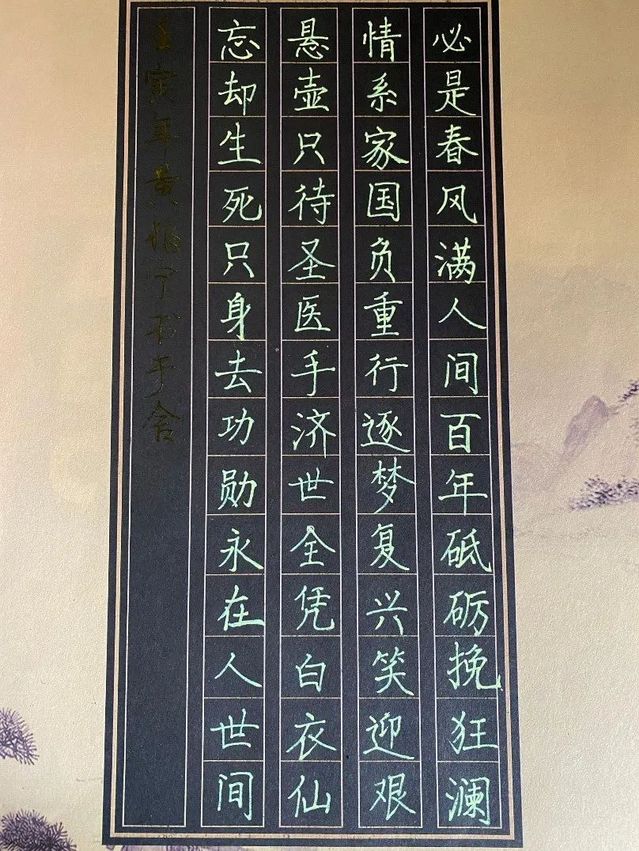 必是春风满人间百年砥砺挽狂澜
情系家国负重行逐梦复兴笑迎艰
悬壶只待圣医手济世全凭白衣仙
忘却生死只身去功勋永在人世间
壬寅年黄